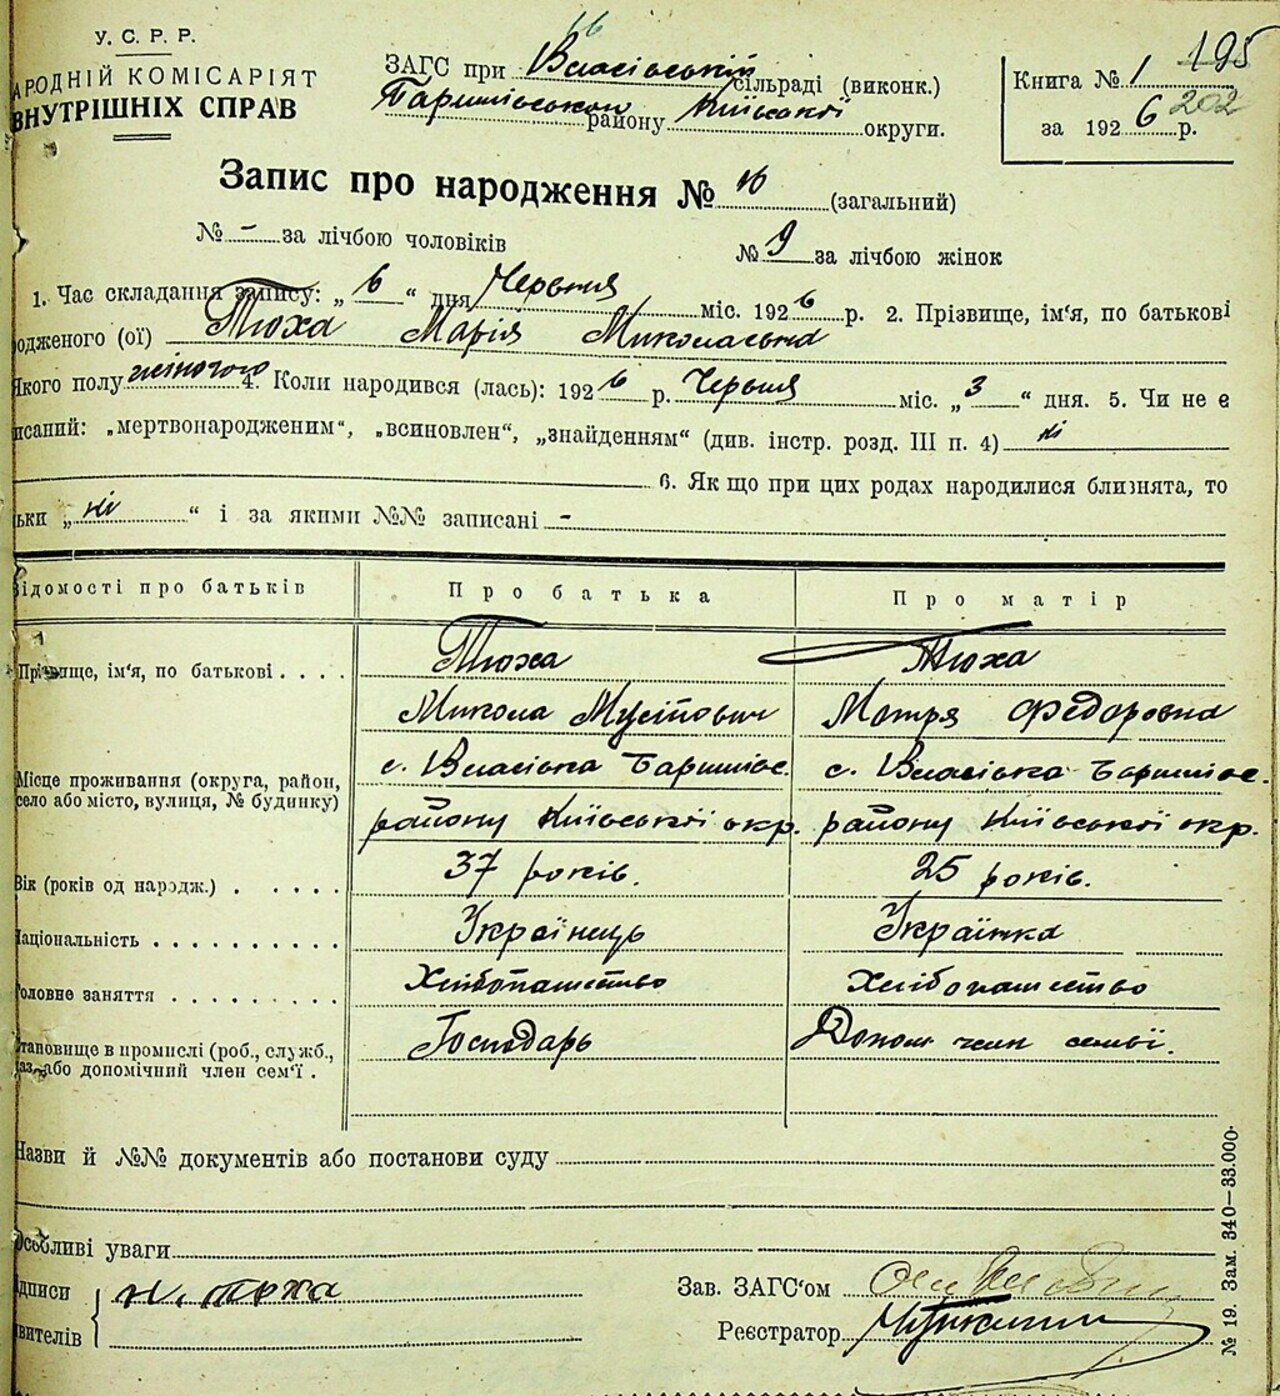 У. С. Р. Р.
АРОДНІЙ КОМІСАРІЯТ
ВНУТРІШНІХ СПРАВ
16
ЗАГС при Власівській сільраді (виконк.)
Баришівськои району Київської округи.
195
Книга № 1
202
за 1926 р.
Запис про народження № 16 (загальний)
№ - за лічбою чоловіків № 9 за лічбою жінок
1. Час складання запису: „ 6 “ дня Червня міс. 1926 р. 2. Прізвище, ім‘я, по батькові
одженого (ої) Тюха Марія Миколаєвна
Якого полу жіночого 4. Коли народився (лась): 1926 р. Червня міс. „ 3 “ дня. 5. Чи не є
исаний: „мертвонародженим“, „всиновлен“, „знайденням“ (див. інстр. розд. III п. 4) ні
6. Як що при цих родах народилися близнята, то
ьки „ ні “ і за якими №№ записані -
Відомості про батьків Про батька Про матір
Прізвище, ім‘я, по батькові . . . . Тюха Тюха
Микола Мусійович Мотря Федоровна
Місце проживання (округа, район, село або місто, вулиця, № будинку) с. Власівка Баришівс. с. Власівка Баришівс.
району Київської окр. району Київської окр.
Вік (років од народж.) . . . . . 37 років. 25 років.
Національність . . . . . . . . . . Українець Українка
Головне заняття . . . . . . . . . Хлібопашество Хлібопашество
тановище в промислі (роб., служб., або допомічний член сем‘ї . Господарь Допом член семьї.
Назви й №№ документів або постанови суду
Особливі уваги
дписи Н. Тюха
вителів
Зав. ЗАГС‘ом
Реєстратор
№ 19. Зам. 340—33.000.